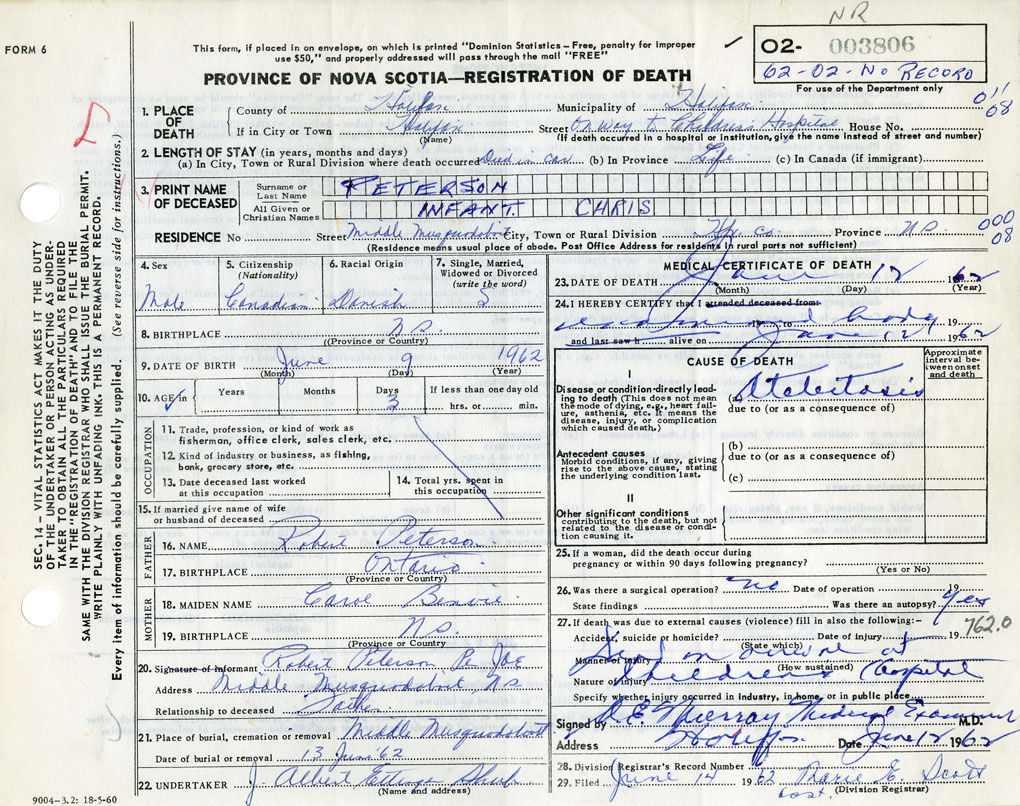 NR
FORM 6
This form, if placed in an envelope, on which is printed "Dominion Statistics – Free, penalty for improper
use $50," and properly addressed will pass through the mail "FREE"
PROVINCE OF NOVA SCOTIA—REGISTRATION OF DEATH
02- 003806
62-02-No RECORD
For use of the Department only
1. PLACE OF DEATH
County of Halifax Municipality of Halifax
011
08
If in City or Town Halifax Street On way to Children's Hospital House No.
(Name) (If death occurred in a hospital or institution, give the name instead of street and number)
2. LENGTH OF STAY (in years, months and days)
(a) In City, Town or Rural Division where death occurred Died in car (b) In Province Life (c) In Canada (if immigrant)
3. PRINT NAME OF DECEASED
Surname or Last Name PETERSON
All Given or Christian Names INFANT CHRIS
RESIDENCE No Street Middle Musquodoboit City, Town or Rural Division Hfx Co. Province N.S.
000
08
(Residence means usual place of abode. Post Office Address for residents in rural parts not sufficient)
4. Sex
Male
5. Citizenship
(Nationality)
Canadian
6. Racial Origin
Danish
7. Single, Married,
Widowed or Divorced
(write the word)
S
8. BIRTHPLACE N.S.
(Province or Country)
9. DATE OF BIRTH June 9 1962
(Month) (Day) (Year)
10. AGE in Years Months Days If less than one day old
3 hrs. or min.
OCCUPATION
11. Trade, profession, or kind of work as
fisherman, office clerk, sales clerk, etc.
12. Kind of industry or business, as fishing,
bank, grocery store, etc.
13. Date deceased last worked
at this occupation
14. Total yrs. spent in
this occupation
15. If married give name of wife
or husband of deceased
FATHER
16. NAME Robert Peterson
17. BIRTHPLACE Ontario
(Province or Country)
MOTHER
18. MAIDEN NAME Carol Benvie
19. BIRTHPLACE N.S.
(Province or Country)
20. Signature of informant Robert Peterson Per JAE
Address Middle Musquodoboit, N.S.
Relationship to deceased Father
21. Place of burial, cremation or removal Middle Musquodoboit
Date of burial or removal 13 June '62
22. UNDERTAKER J. Albert
(Name and address)
9004-3.2: 18-5-60
MEDICAL CERTIFICATE OF DEATH
23. DATE OF DEATH June 12 1962
(Month) (Day) (Year)
24. I HEREBY CERTIFY that I attended deceased from:
examined body 19
to
and last saw h alive on June 12 1962
CAUSE OF DEATH
Approximate
interval be-
tween onset
and death
I
Disease or condition directly lead-
ing to death (This does not mean
the mode of dying, e.g., heart fail-
ure, asthenia, etc. It means the
disease, injury, or complication
which caused death.)
(a) Atelectasis
due to (or as a consequence of)
(b)
Antecedent causes
Morbid conditions, if any, giving
rise to the above cause, stating
the underlying condition last.
due to (or as a consequence of)
(c)
II
Other significant conditions
contributing to the death, but not
related to the disease or condi-
tion causing it.
25. If a woman, did the death occur during
pregnancy or within 90 days following pregnancy?
(Yes or No)
26. Was there a surgical operation? no Date of operation 19
State findings Was there an autopsy? yes
27. If death was due to external causes (violence) fill in also the following:–
762.0
Accident, suicide or homicide? Date of injury 19
(State which)
Dead on arrival at
Manner of injury
(How sustained)
Nature of injury Children's Hospital
Specify whether injury occurred in industry, in home, or in public place
Signed by Murray Medical Examiner M.D.
Address Halifax Date June 12 1962
28. Division Registrar's Record Number
29. Filed June 14 1962 Marie E. Scott
(Division Registrar)
SEC. 14 – VITAL STATISTICS ACT MAKES IT THE DUTY
OF THE UNDERTAKER OR PERSON ACTING AS UNDER-
TAKER TO OBTAIN ALL THE PARTICULARS REQUIRED
IN THE "REGISTRATION OF DEATH" AND TO FILE THE
SAME WITH THE DIVISION REGISTRAR WHO SHALL ISSUE THE BURIAL PERMIT.
WRITE PLAINLY WITH UNFADING INK. THIS IS A PERMANENT RECORD.
Every item of information should be carefully supplied. (See reverse side for instructions.)